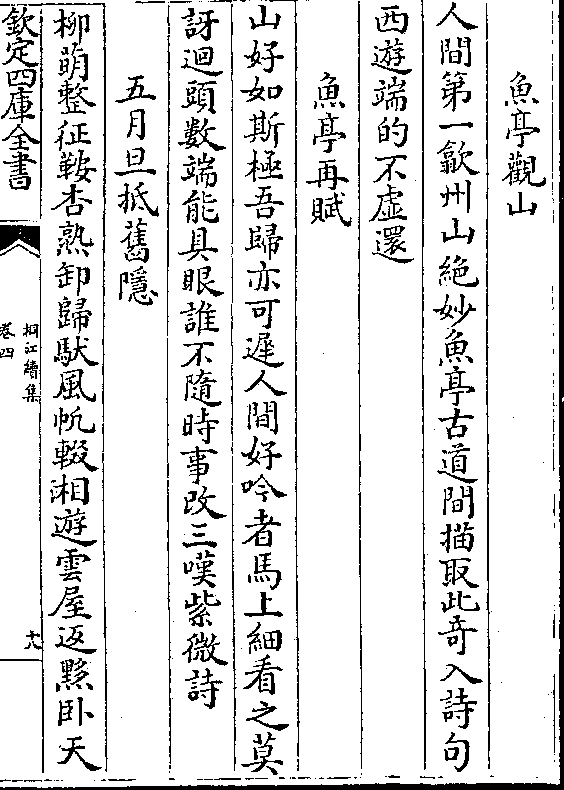 魚亭觀山
人間第一歙州山絶妙魚亭古道間描取此奇入詩句
西遊端的不虛還
魚亭再賦
山好如斯極吾歸亦可遲人間好吟者馬上細看之莫
訝迴頭數端能具眼誰不隨時事改三嘆紫微詩
五月旦抵舊隱
柳萌整征鞍杏熟卸歸馱風帆輟湘遊雲屋返黟卧天
欽定四庫全書
桐江續集
卷四
十八